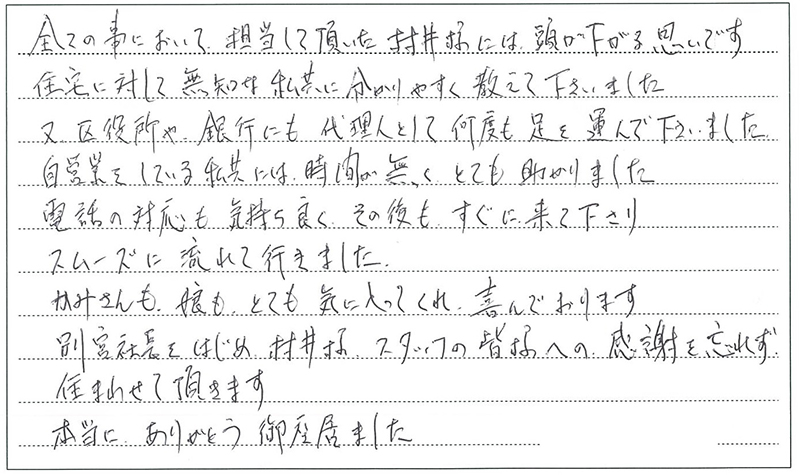 全ての事において、担当して頂いた村井様には、頭が下がる思いです
住宅に対して無知な私共に分かりやすく教えて下さいました
又、区役所や、銀行にも代理人として何度も足を運んで下さいました。
自営業をしている私共には、時間が無く、とても助かりました
電話の対応も気持ち良く、その後も、すぐに来て下さり
スムーズに流れて行きました。
かみさんも、娘も、とても気に入ってくれ、喜んでおります
別宮社長をはじめ、村井様、スタッフの皆様への、感謝を忘れず、
住まわせて頂きます
本当に、ありがとう御座居ました